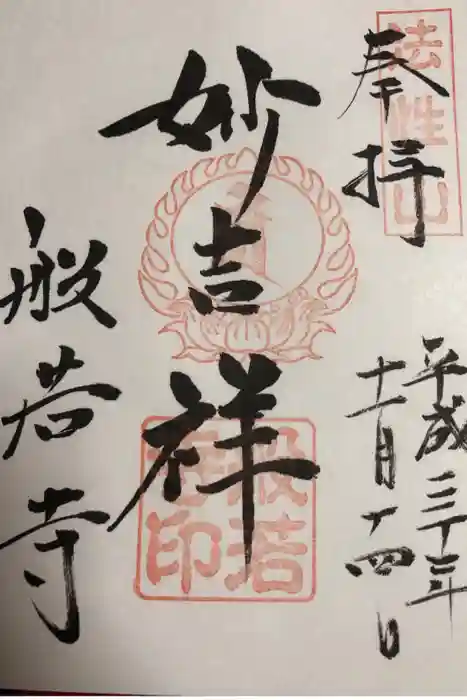 法性山
奉拝
平成三十年
十一月十四日
妙吉祥
般若
印
般若寺